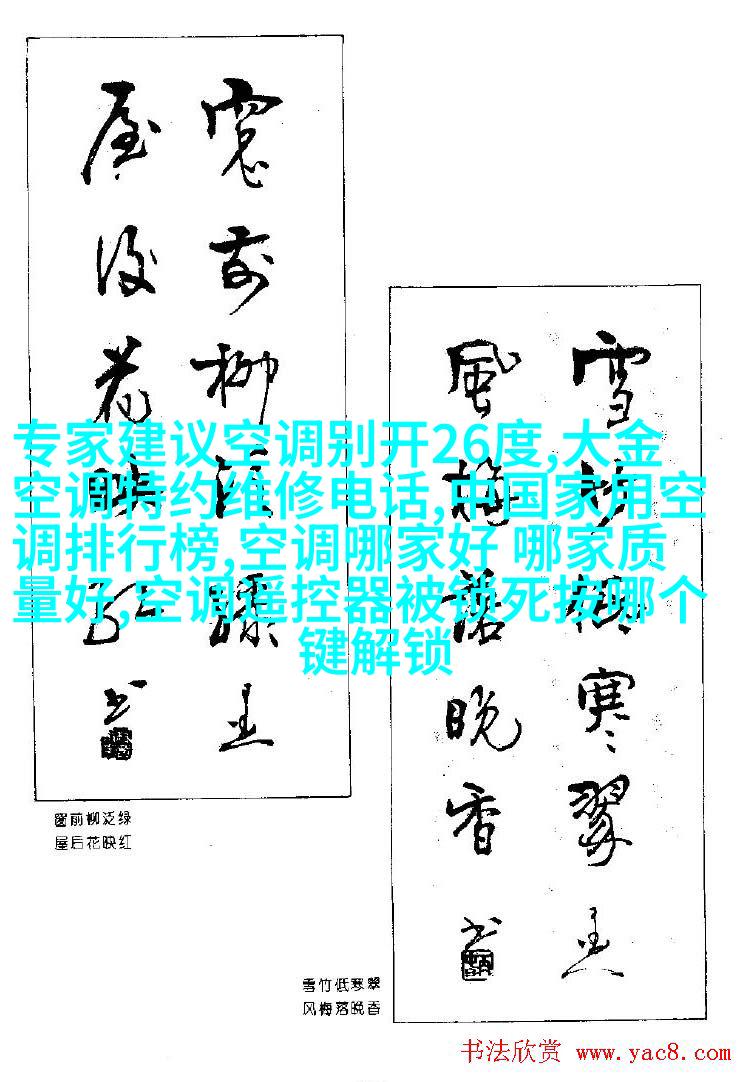 窗前柳泛绿
屋后花映红
雪竹低寒翠
风梅落晚香
专家建议空调别开26度,大金
空调特约维修电话,中国家用空
调排行榜,空调哪家好 哪家质
量好,空调遥控器被锁死按哪个
键解锁
窗前柳泛绿
屋后花映红
雪竹低寒翠
风梅落晚香
书法欣赏 www.yac8.com